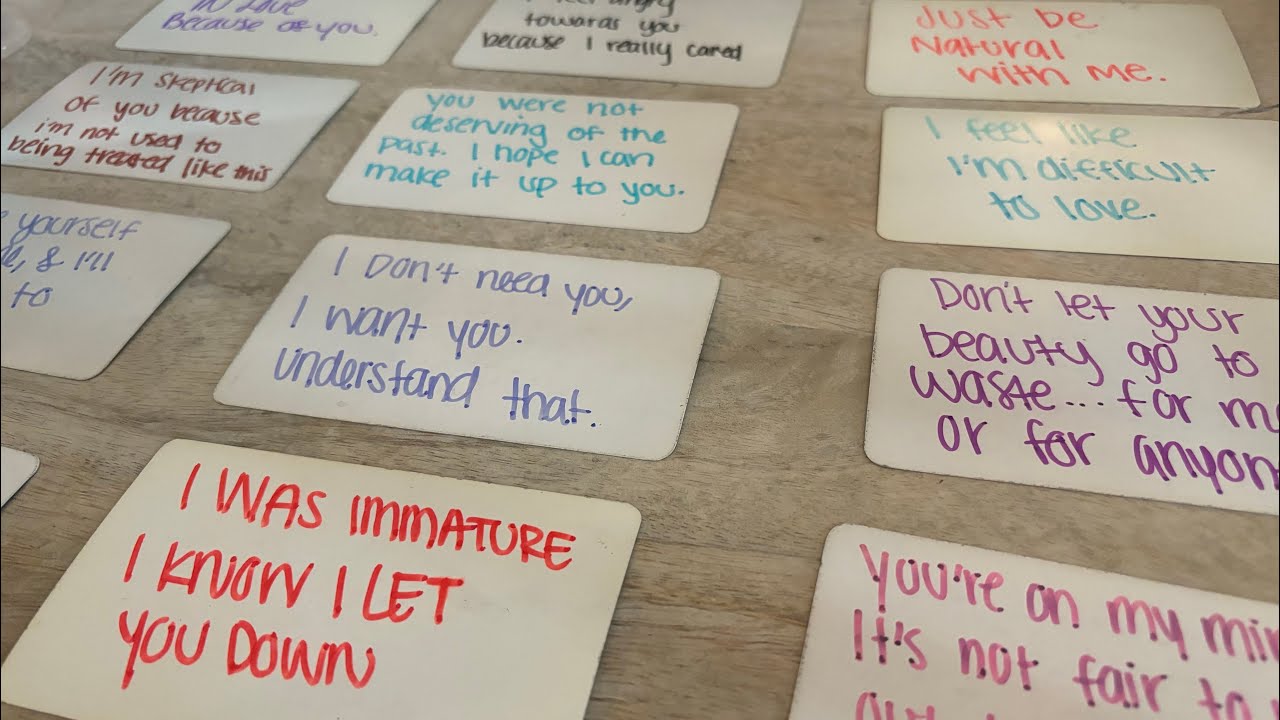 in Love
Because of you.
I feel angry
towards you
because I really cared
Just be
Natural
with me.
I'm skeptical
of you because
i'm not used to
being treated like this
you were not
deserving of the
past. I hope I can
make it up to you.
I feel like
I'm difficult
to love.
yourself
& I'll
to
I Don't need you,
I want you.
understand that.
Don't let your
beauty go to
waste... for
or for
I WAS IMMATURE
I KNOW I LET
YOU DOWN
You're on my
It's not fair to